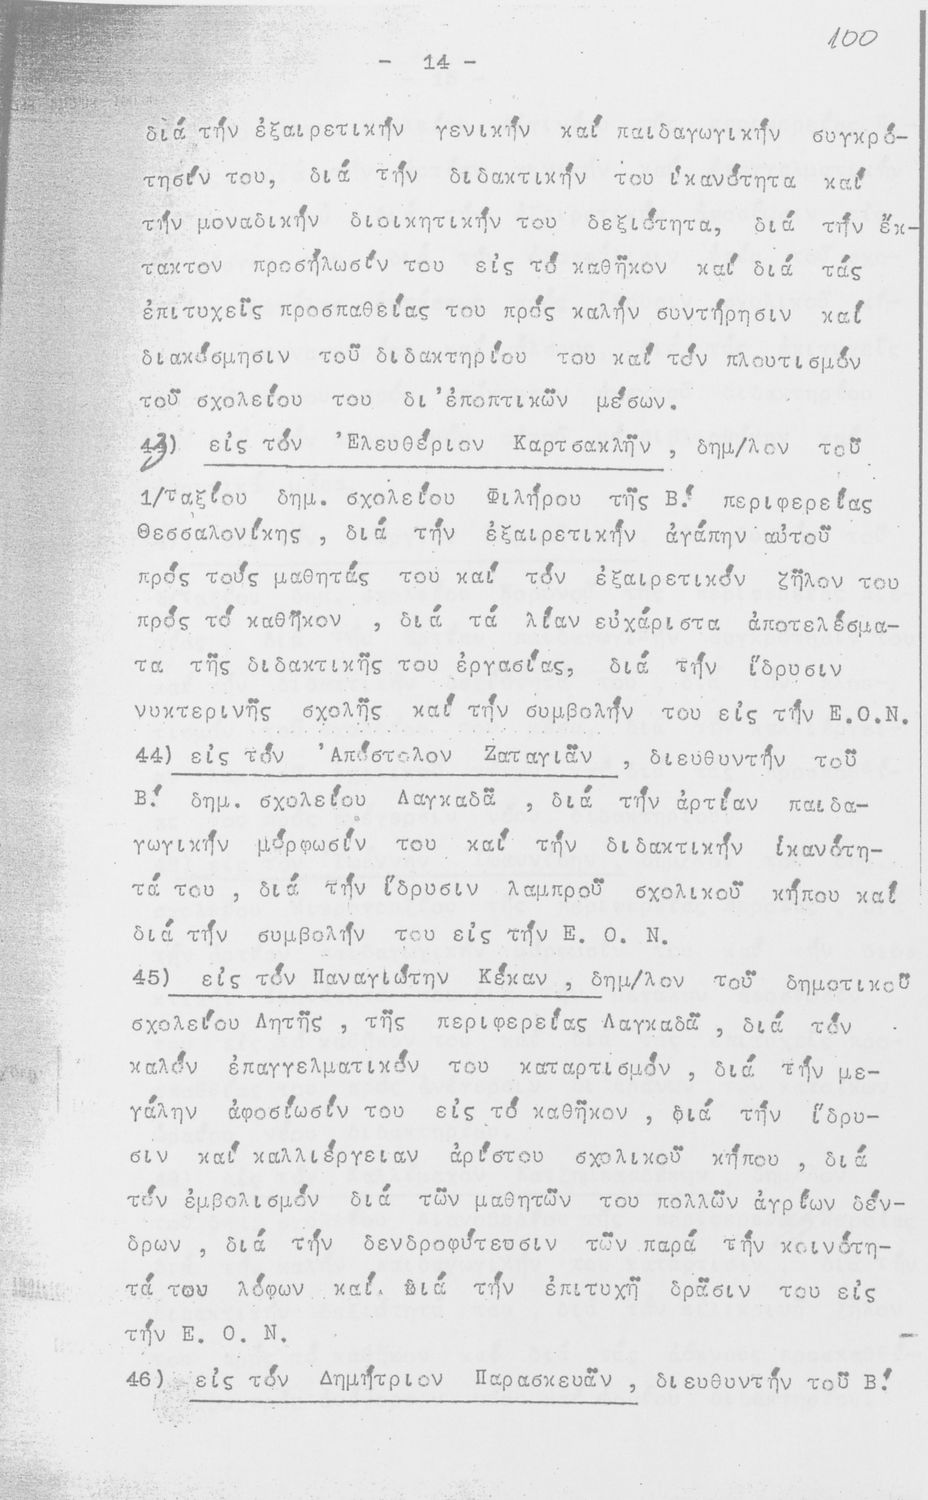 100
- 14 -
διά τήν ἐξαιρετικήν γενικήν καί παιδαγωγικήν συγκρό-
τησίν του, διά τήν διδακτικήν του ἱκανότητα καί
τήν μοναδικήν διοικητικήν του δεξιότητα, διά τήν ἔκ-
τακτον προσήλωσίν του εἰς τό καθῆκον καί διά τάς
ἐπιτυχεῖς προσπαθείας του πρός καλήν συντήρησιν καί
διακόσμησιν τοῦ διδακτηρίου του καί τόν πλουτισμόν
τοῦ σχολείου του δι'ἐποπτικῶν μέσων.
43) εἰς τόν Ἐλευθέριον Καρτσακλῆν , δημ/λον τοῦ
1/ταξίου δημ. σχολείου Φιλήρου τῆς Β! περιφερείας
Θεσσαλονίκης , διά τήν ἐξαιρετικήν ἀγάπην αὐτοῦ
πρός τούς μαθητάς του καί τόν ἐξαιρετικόν ζῆλον του
πρός τό καθῆκον , διά τά λίαν εὐχάριστα ἀποτελέσμα-
τα τῆς διδακτικῆς του ἐργασίας, διά τήν ἵδρυσιν
νυκτερινῆς σχολῆς καί τήν συμβολήν του εἰς τήν Ε.Ο.Ν.
44) εἰς τόν Ἀπόστολον Ζαταγιᾶν , διευθυντήν τοῦ
Β! δημ. σχολείου Λαγκαδᾶ , διά τήν ἀρτίαν παιδα-
γωγικήν μόρφωσίν του καί τήν διδακτικήν ἱκανότη-
τά του , διά τήν ἵδρυσιν λαμπροῦ σχολικοῦ κήπου καί
διά τήν συμβολήν του εἰς τήν Ε. Ο. Ν.
45) εἰς τόν Παναγιώτην Κέκαν , δημ/λον τοῦ δημοτικοῦ
σχολείου Λητῆς , τῆς περιφερείας Λαγκαδᾶ , διά τόν
καλόν ἐπαγγελματικόν του καταρτισμόν , διά τήν με-
γάλην ἀφοσίωσίν του εἰς τό καθῆκον , διά τήν ἵδρυ-
σιν καί καλλιέργειαν ἀρίστου σχολικοῦ κήπου , διά
τόν ἐμβολισμόν διά τῶν μαθητῶν του πολλῶν ἀγρίων δέν-
δρων , διά τήν δενδροφύτευσιν τῶν παρά τήν κοινότη-
τά του λόφων καί. διά τήν ἐπιτυχῆ δρᾶσιν του εἰς
τήν Ε. Ο. Ν.
46) εἰς τόν Δημήτριον Παρασκευᾶν , διευθυντήν τοῦ Β!